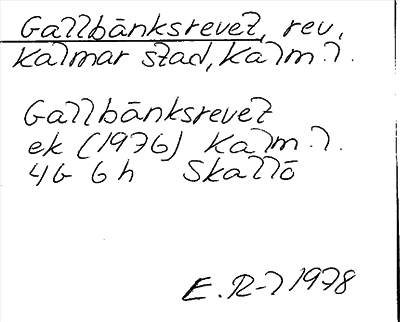 Gallbänksrevet, rev,
Kalmar stad, Kalm. l.
Gallbänksrevet
ek (1976) Kalm. l.
4G 6h Skallö
E. R-l 1978